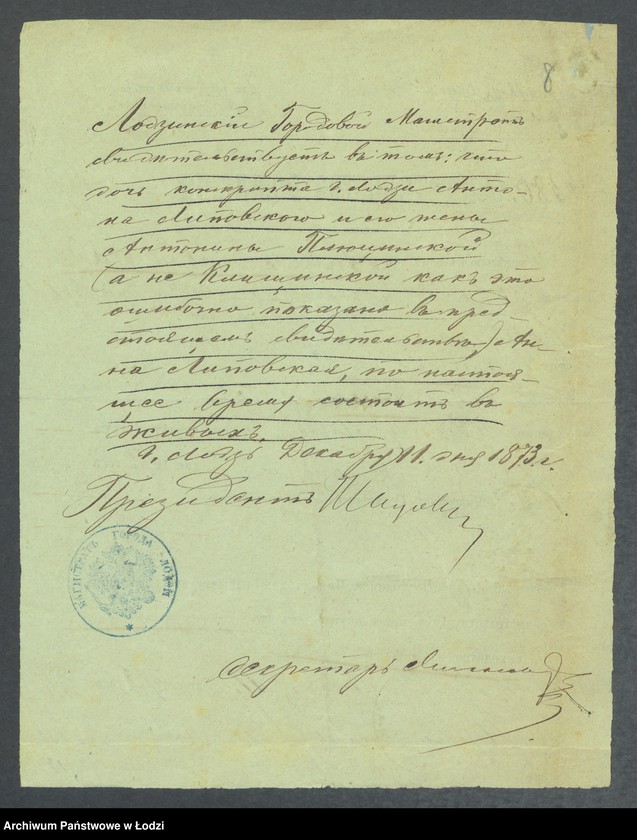 8
Лодзинскій Городовой Магистратъ
свидѣтельствуетъ въ томъ: что
дочь конскрипта г. Лодзи Анто-
на Липовскаго и его жены
Антонины Плющинской
(а не Клищинской какъ это
ошибочно показано въ пред-
стоящемъ свидѣтельствѣ) Ан-
на Липовская, по настоя-
щее время состоитъ въ
живыхъ.
г. Лодзь Декабря 11. дня 1873 г.
Президентъ
МАГИСТРАТЪ ГОРОДА ЛОДЗИ
Секретарь
Archiwum Państwowe w Łodzi